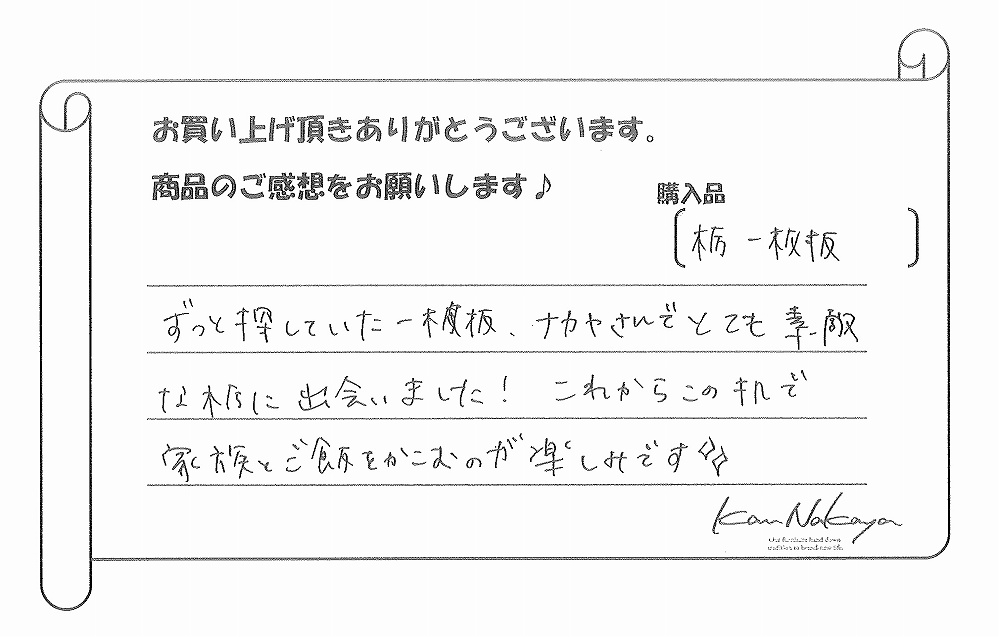 お買い上げ頂きありがとうございます。
商品のご感想をお願いします♪
購入品
〔栃 一枚板〕
ずっと探していた一枚板、ナカヤさんでとても素敵
な栃に出会いました！ これからこの机で
家族とご飯をかこむのが楽しみです
Kan Nakaya
Our furniture hand down
tradition to brand-new life